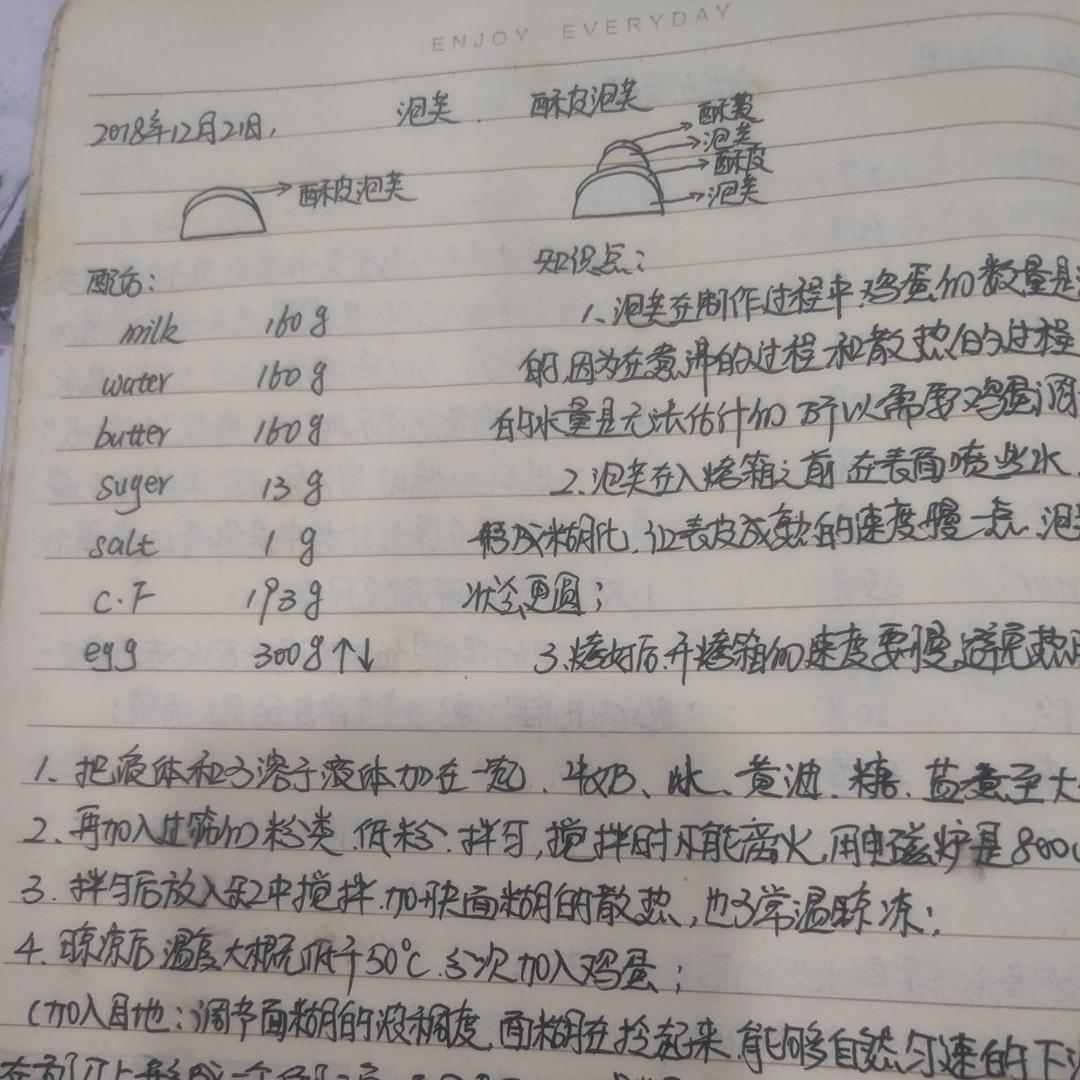 ENJOY EVERYDAY
2018年12月21日, 泡芙. 酥皮泡芙
酥皮
泡芙
酥皮
泡芙
酥皮泡芙
配方:
milk 160g
water 160g
butter 160g
suger 13g
salt 1g
C.F 193g
egg 300g↑↓
知识点:
1、泡芙在制作过程中,鸡蛋的数量是
的,因为在煮沸的过程和散热的过程
的水量是无法估计的 所以需要鸡蛋调
2.泡芙在入烤箱之前 在表面喷些水.
形成糊化,让表皮成熟的速度慢一点.泡芙
状会更圆;
3.烤好后,开烤箱的速度要慢,避免热
1.把液体和可溶于液体加在一起、牛奶、水、黄油、糖、盐煮至大
2.再加入过筛的粉类.低粉.拌匀,搅拌时不能离火,用电磁炉是800
3.拌匀后放入缸中搅拌.加快面糊的散热,也可常温晾冻;
4.晾凉后,温度大概低于50℃.分次加入鸡蛋;
(加入目地:调节面糊的浓稠度,面糊在捡起来,能够自然匀速的下